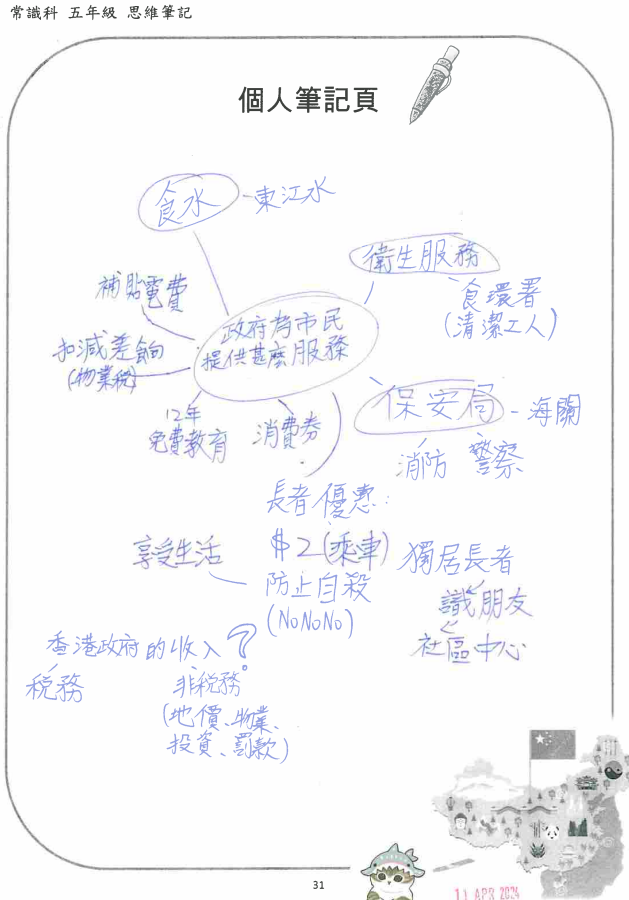 常識科 五年級 思維筆記
個人筆記頁
食水 - 東江水
衛生服務
食環署
(清潔工人)
補貼電費
政府為市民
提供甚麼服務
扣減差餉
(物業稅)
保安局 - 海關
消防 警察
12年
免費教育
消費券
長者優惠:
$2(乘車)
享受生活
防止自殺
(NoNoNo)
獨居長者
識朋友
社區中心
香港政府的收入?
稅務
非稅務
(地價、物業、
投資、罰款)
31
11 APR 2024